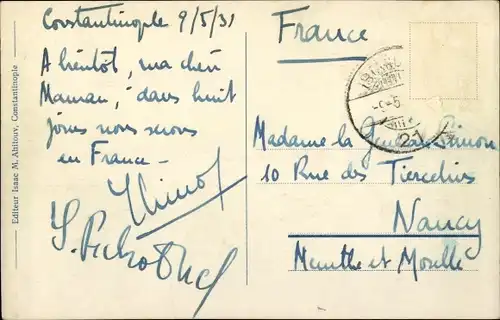 Constantinople 9/5/31
A bientôt, ma chère
Maman, dans huit
jours nous serons
en France -
France
Madame la Général Simon
10 Rue des Tiercelins
Nancy
Meurthe et Moselle
Editeur Isaac M. Ahitouv, Constantinople
-9-5
21